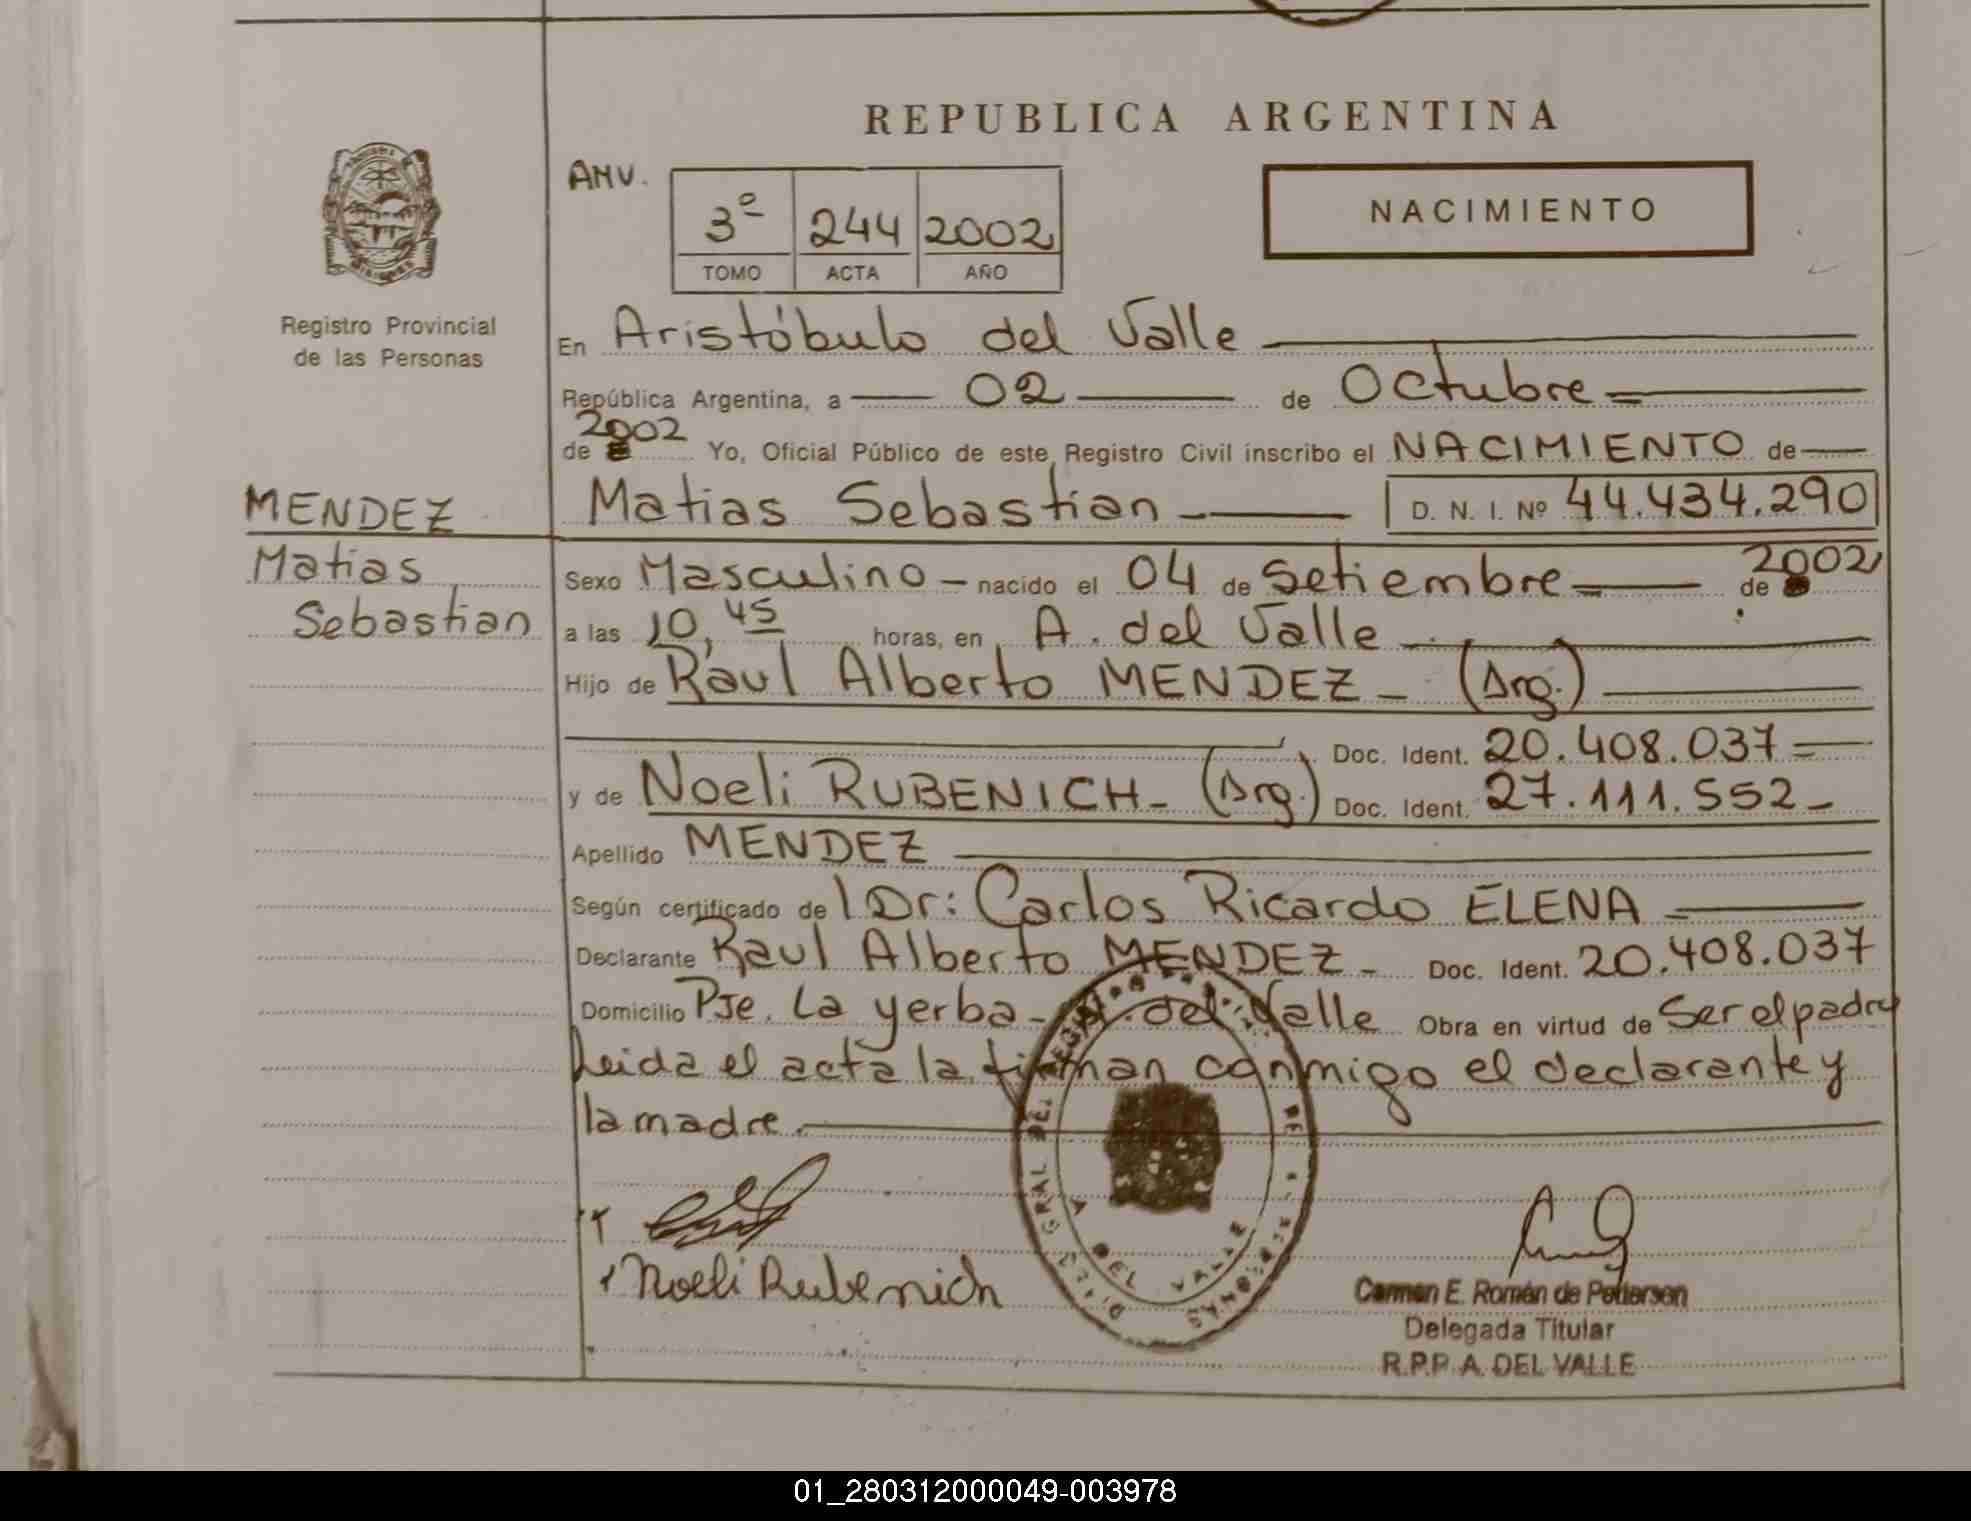 REPUBLICA ARGENTINA
ANV.
3º 244 2002
TOMO ACTA AÑO
NACIMIENTO
Registro Provincial
de las Personas
En Aristóbulo del Valle
República Argentina, a 02 de Octubre
de 2002 Yo, Oficial Público de este Registro Civil inscribo el NACIMIENTO de
MENDEZ
Matias
Sebastian
Matias Sebastian D. N. I. Nº 44.434.290
Sexo Masculino nacido el 04 de Setiembre de 2002
a las 10,45 horas, en A. del Valle
Hijo de Raul Alberto MENDEZ (Arg.)
Doc. Ident. 20.408.037
y de Noeli RUBENICH (Arg.) Doc. Ident. 27.111.552
Apellido MENDEZ
Según certificado de l Dr: Carlos Ricardo ELENA
Declarante Raul Alberto MENDEZ Doc. Ident. 20.408.037
Domicilio Pje. La yerba - A. del Valle Obra en virtud de Ser el padre
Leida el acta la firman conmigo el declarante y
la madre.
GRAL DEL
A DEL VALLE
Noeli Rubenich
Carmen E. Román de Pedersen
Delegada Titular
R.P.P. A. DEL VALLE
01_280312000049-003978